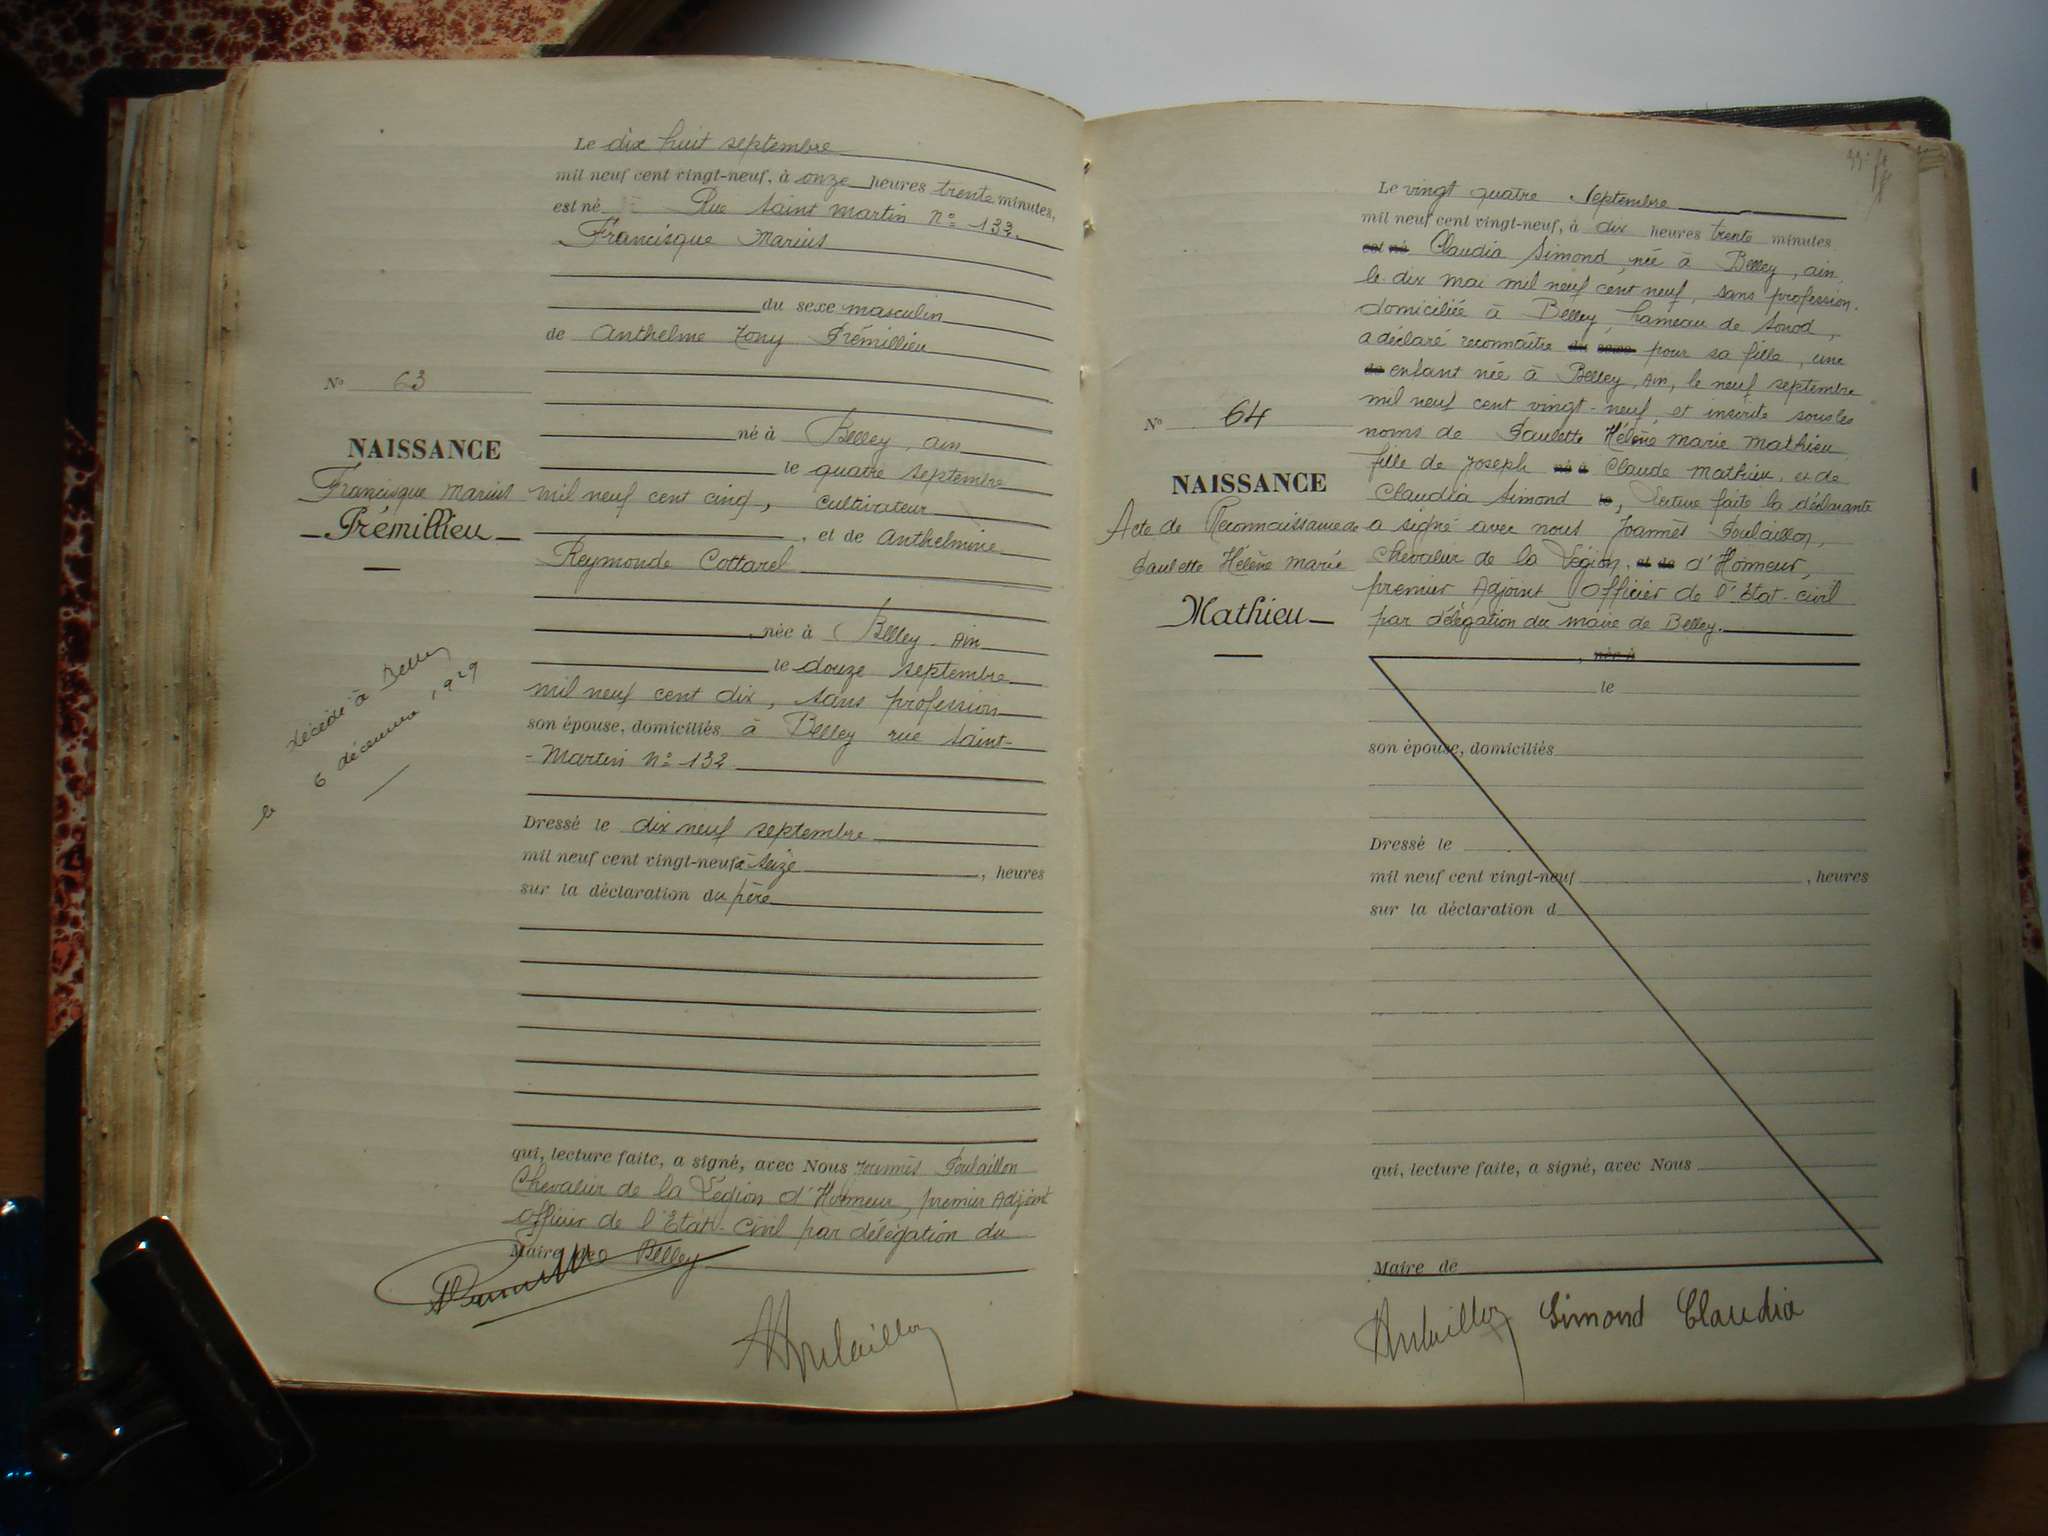 Le dix huit septembre
mil neuf cent vingt-neuf, à onze heures trente minutes,
est né Rue Saint Martin N° 133.
Francisque Marius
du sexe masculin
de Anthelme Tony Prémillieu
N° 63
né à Belley, ain
le quatre septembre
NAISSANCE
Francisque Marius
mil neuf cent cinq, cultivateur
Prémillieu
, et de Anthelmine
Reymonde Cottarel
née à Belley Ain
le douze septembre
mil neuf cent dix, sans profession
son épouse, domiciliés à Belley rue Saint-
-Martin N° 132
décédé à Belley
le 6 décembre 1929
Dressé le dix neuf septembre
mil neuf cent vingt-neuf à seize , heures
sur la déclaration du père
qui, lecture faite, a signé, avec Nous Joannès Poulaillon
Chevalier de la Légion d'Honneur, premier Adjoint
Officier de l'Etat-Civil par délégation du
Maire de Belley
Le vingt quatre Septembre
mil neuf cent vingt-neuf, à dix heures trente minutes
est né Claudia Simond, née à Belley, ain
le dix mai mil neuf cent neuf, sans profession.
domiciliée à Belley, hameau de Sonod,
a déclaré reconnaître du sexe pour sa fille, une
de enfant née à Belley, Ain, le neuf septembre
mil neuf cent vingt-neuf, et inscrite sous les
N° 64
noms de Paulette Hélène Marie Mathieu
fille de Joseph né à Claude Mathieu, et de
NAISSANCE
Claudia Simond le, lecture faite la déclarante
Acte de Reconnaissance de
a signé avec nous Joannès Poulaillon,
Paulette Hélène Marie
Chevalier de la Légion, et de d'Honneur,
Mathieu
premier Adjoint Officier de l'Etat-civil
par délégation du maire de Belley.
, née à
le
son épouse, domiciliés
Dressé le
mil neuf cent vingt-neuf , heures
sur la déclaration d
qui, lecture faite, a signé, avec Nous
Maire de
Poulaillon Simond Claudia